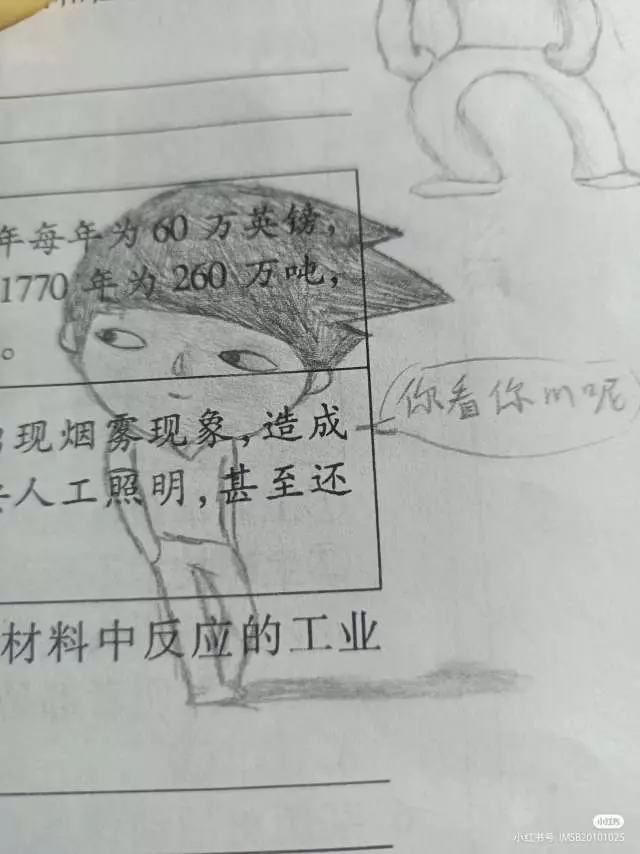 年每年为 60 万英镑，
1770 年为 260 万吨，
。
现烟雾现象，造成
人工照明，甚至还
你看你叫呢
材料中反应的工业
小红书
小红书号：IMSB20101025